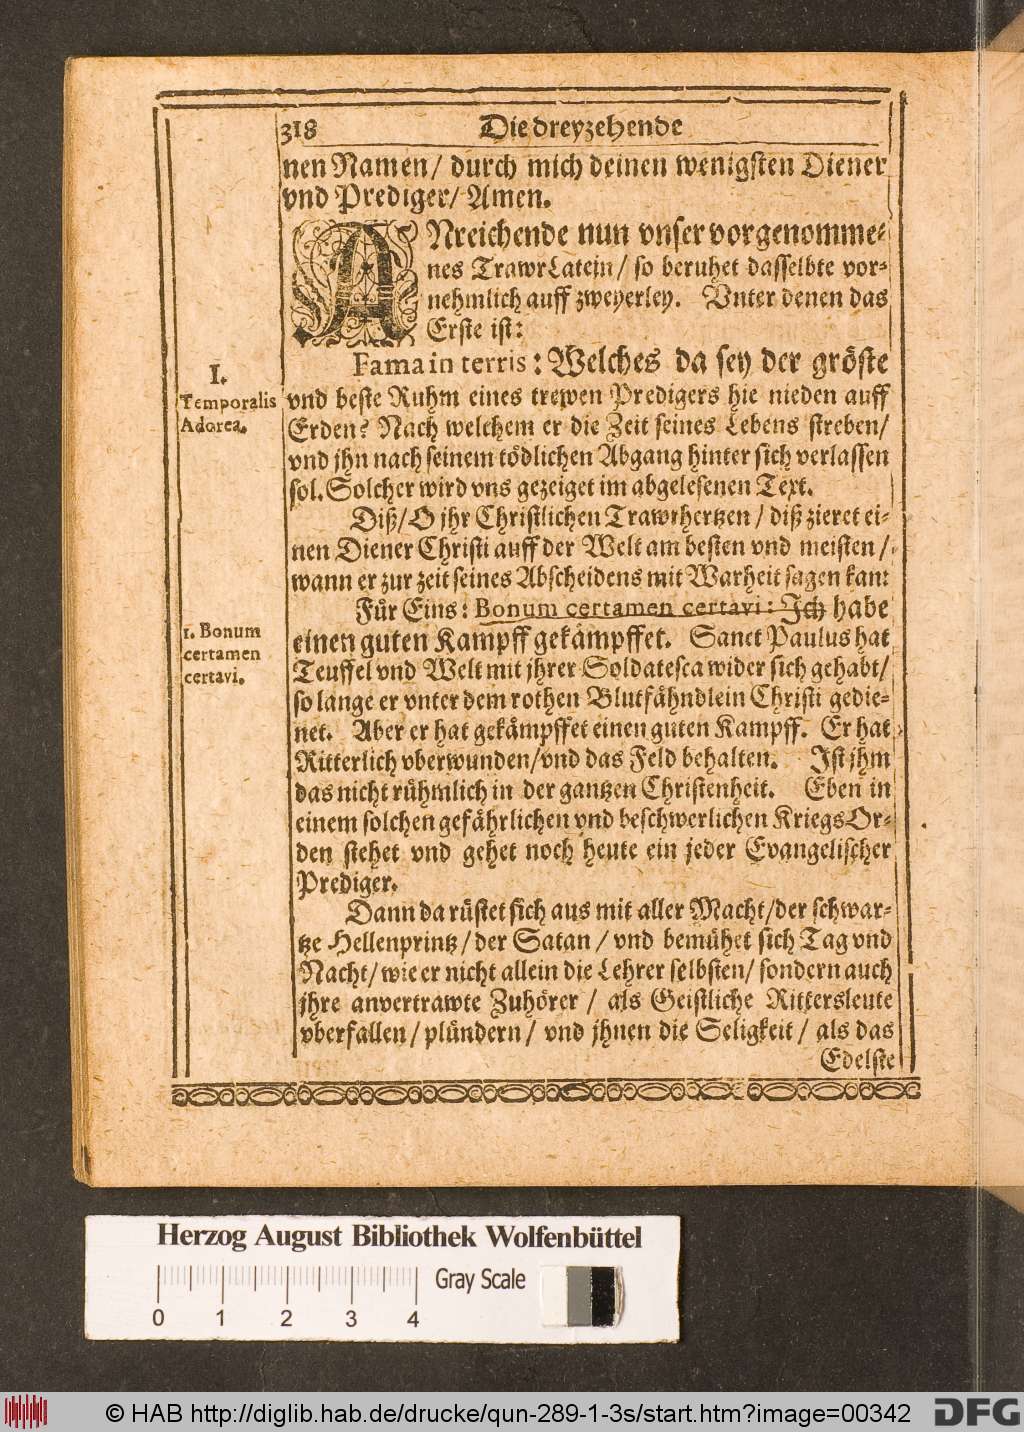 318
Die dreyzehende
nen Namen / durch mich deinen wenigsten Diener
vnd Prediger / Amen.
ANreichende nun vnser vorgenomme-
nes TrawrLatein / so beruhet dasselbte vor-
nehmlich auff zweyerley. Vnter denen das
Erste ist:
I.
Temporalis
Adorea.
Fama in terris: Welches da sey der gröste
vnd beste Ruhm eines trewen Predigers hie nieden auff
Erden? Nach welchem er die Zeit seines Lebens streben /
vnd jhn nach seinem tödlichen Abgang hinter sich verlassen
sol. Solcher wird vns gezeiget im abgelesenen Text.
Diß / O jhr Christlichen Trawrhertzen / diß zieret ei-
nen Diener Christi auff der Welt am besten vnd meisten /
wann er zur zeit seines Abscheidens mit Warheit sagen kan:
1. Bonum
certamen
certavi.
Für Eins: Bonum certamen certavi: Jch habe
einen guten Kampff gekämpffet. Sanct Paulus hat
Teuffel vnd Welt mit jhrer Soldatesca wider sich gehabt /
so lange er vnter dem rothen Blutfähndlein Christi gedie-
net. Aber er hat gekämpffet einen guten Kampff. Er hat
Ritterlich vberwunden / vnd das Feld behalten. Jst jhm
das nicht rühmlich in der gantzen Christenheit. Eben in
einem solchen gefährlichen vnd beschwerlichen KriegsOr-
den stehet vnd gehet noch heute ein jeder Evangelischer
Prediger.
Dann da rüstet sich aus mit aller Macht / der schwar-
tze Hellenprintz / der Satan / vnd bemühet sich Tag vnd
Nacht / wie er nicht allein die Lehrer selbsten / sondern auch
jhre anvertrawte Zuhörer / als Geistliche Rittersleute
vberfallen / plündern / vnd jhnen die Seligkeit / als das
Edelste
Herzog August Bibliothek Wolfenbüttel
Gray Scale
0 1 2 3 4
© HAB http://diglib.hab.de/drucke/qun-289-1-3s/start.htm?image=00342
DFG